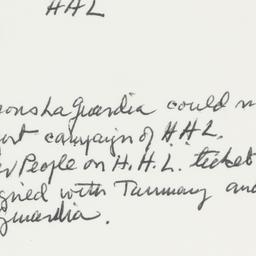 HHL
LaGuardia could n
campaign of H.H.L.
People on H.H.L. ticket
gned with Tammany and
Guardia.